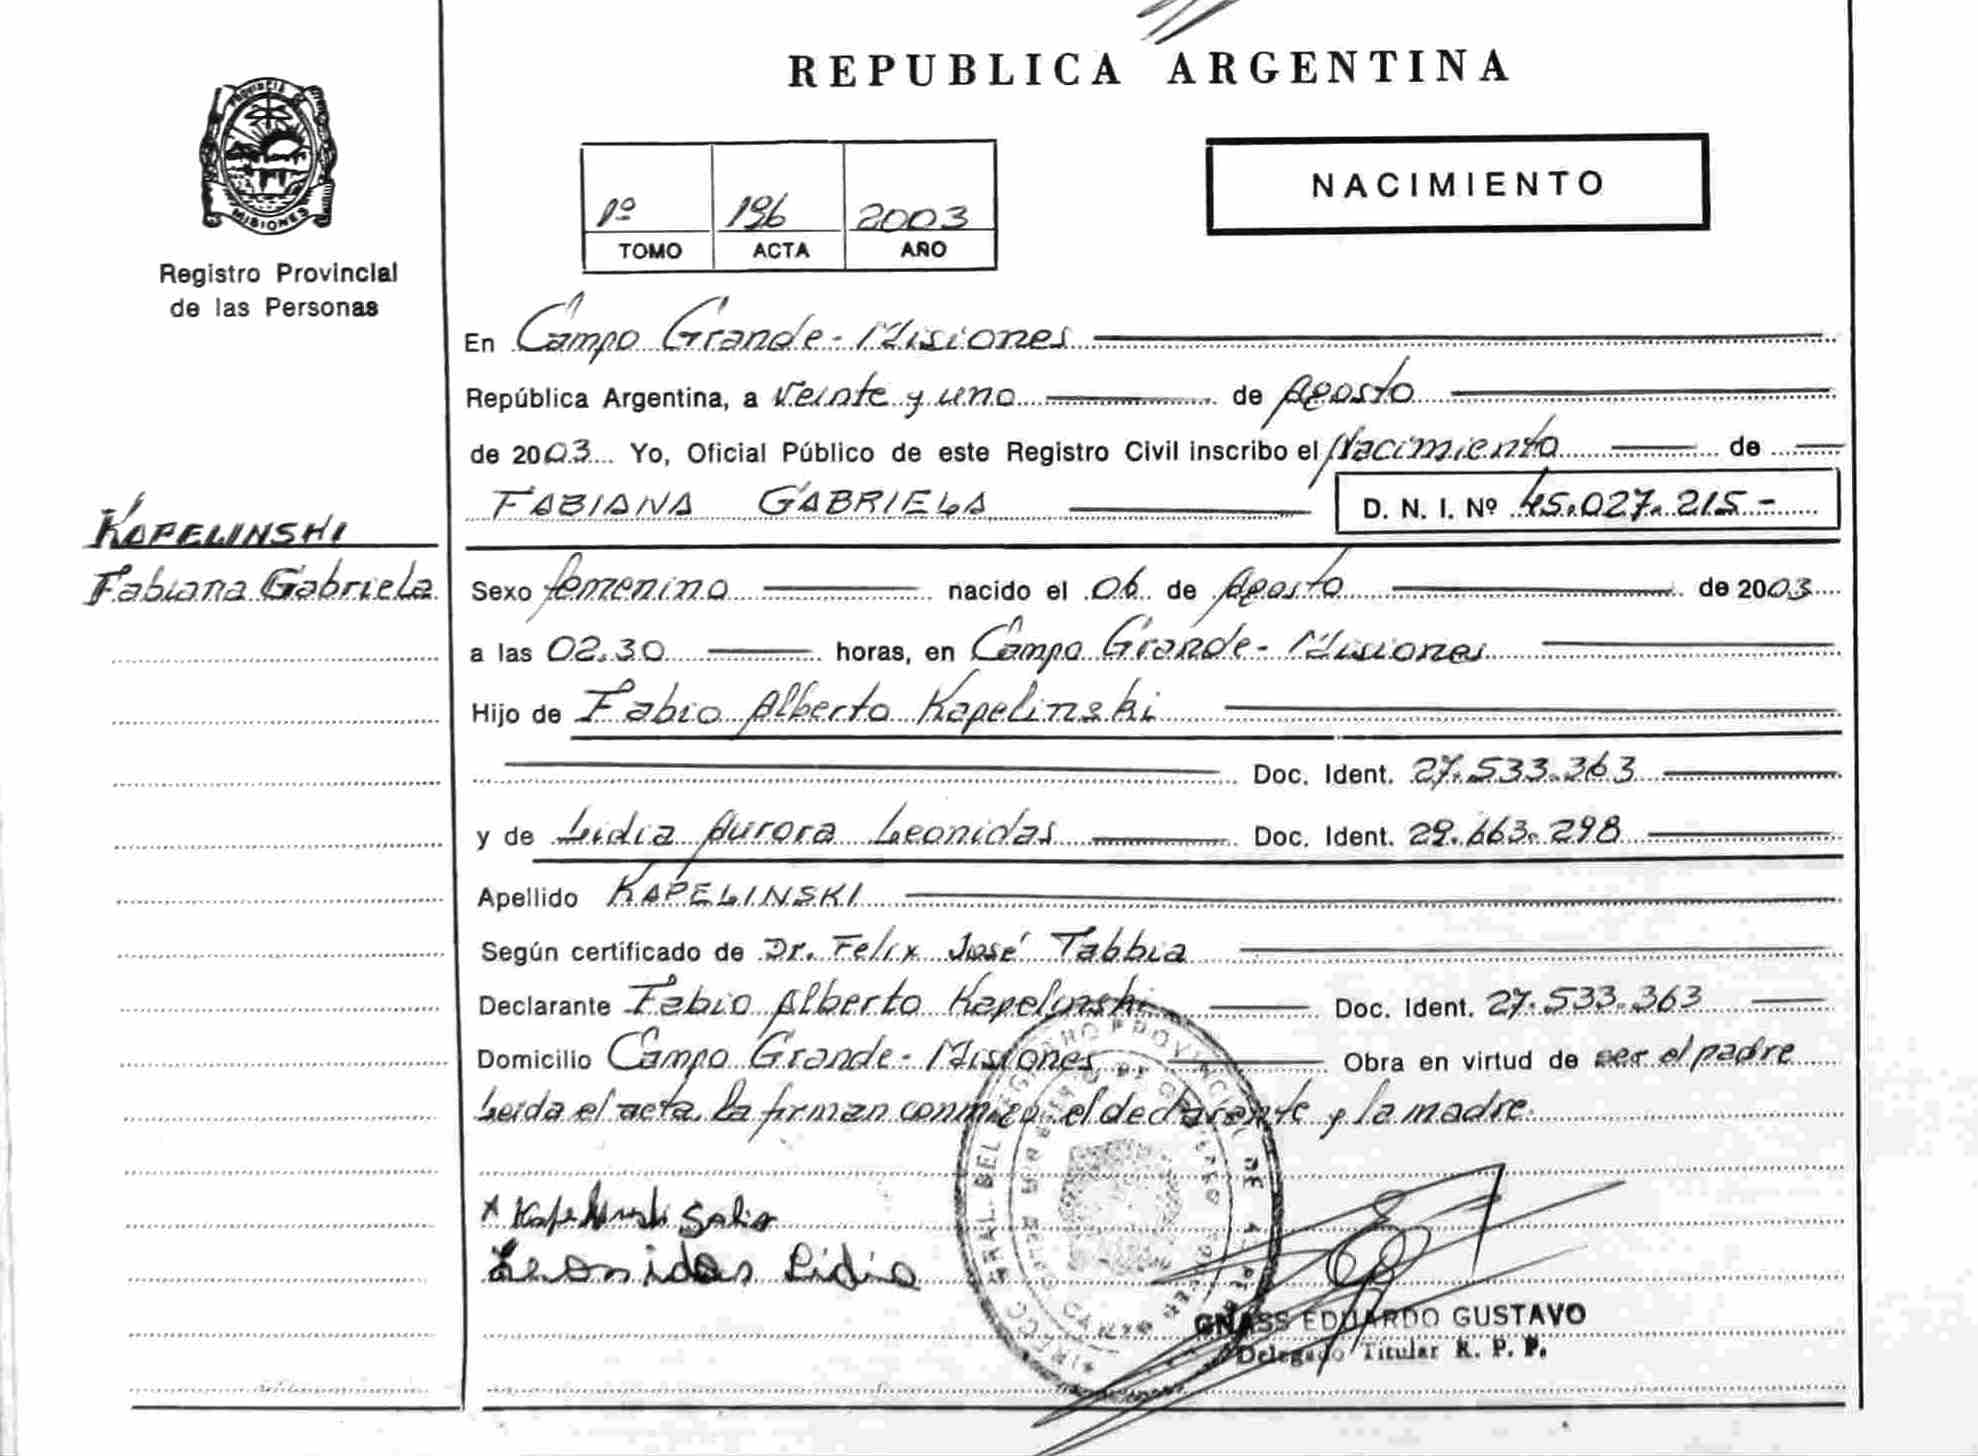 REPUBLICA ARGENTINA
PROVINCIA DE
MISIONES
Registro Provincial
de las Personas
1º 196 2003
TOMO ACTA AÑO
NACIMIENTO
En Campo Grande - Misiones
República Argentina, a Veinte y uno de Agosto
de 2003 Yo, Oficial Público de este Registro Civil inscribo el Nacimiento de
FABIANA GABRIELA D. N. I. Nº 45.027.215-
KAPELINSHI
Fabiana Gabriela
Sexo femenino nacido el 06 de Agosto de 2003
a las 02.30 horas, en Campo Grande - Misiones
Hijo de Fabio Alberto Kapelinski
Doc. Ident. 27.533.363
y de Lidia Aurora Leonidas Doc. Ident. 29.663.298
Apellido KAPELINSKI
Según certificado de Dr. Felix José Tabbia
Declarante Fabio Alberto Kapelinski Doc. Ident. 27.533.363
Domicilio Campo Grande - Misiones Obra en virtud de ser el padre
Leida el acta, la firman conmigo el declarante y la madre.
x Kapelinski
Leonidas Lidia
GNASS EDUARDO GUSTAVO
Delegado Titular R. P. P.